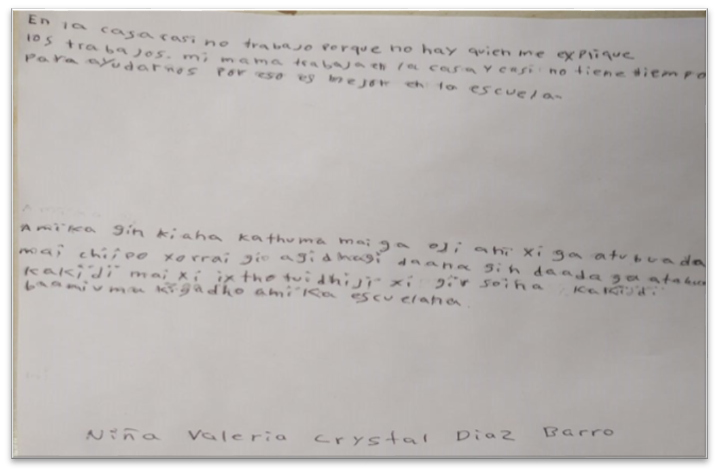 En la casa casi no trabajo porque no hay quien me explique
los trabajos. mi mama trabaja en la casa y casi no tiene tiempo
para ayudarnos por eso es mejor en la escuela.
Amïka gin kiaha kathuma mai ga oji ani xi ga atubuada
mai chiipe xorrai gio agidhagi daana gin daada ga
kakïdï mai xi ixthe tuidhiji xi gir soiha kakïdi
baamuma kigadho amïka escuelana.
Niña Valeria Crystal Diaz Barro